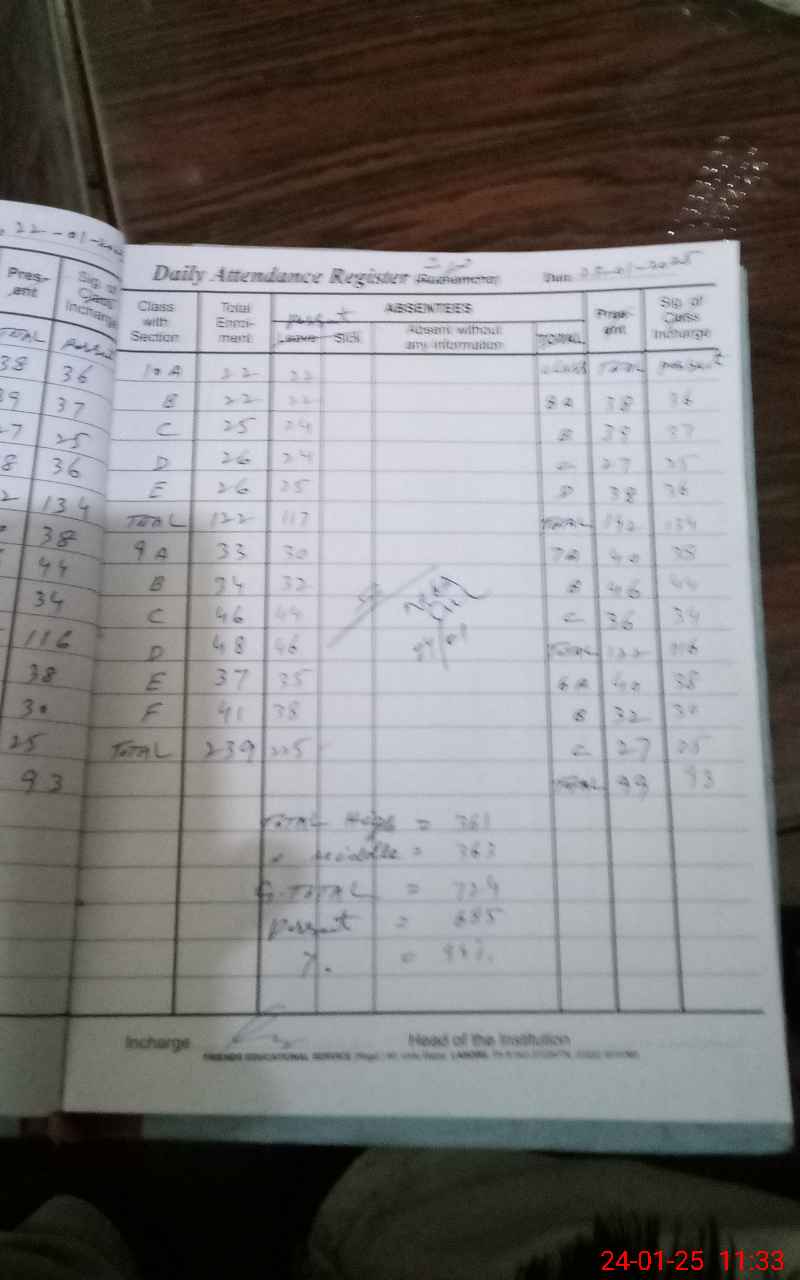 22-01-202
Pres-ent Sig. of Class Incharge
TOTAL Present
38 36
39 37
27 25
8 36
2 134
38
44
34
116
38
30
25
93
Daily Attendance Register
Class with Section Total Enrol-ment ABSENTEES Pres-ent Sig. of Class Incharge
present
Leave Sick Absent without any information TOTAL
10 A 22 22 class Total present
B 22 22 8 A 38 36
C 25 24 B 39 37
D 26 24 C 27 25
E 26 25 D 38 36
TOTAL 122 117 TOTAL 142 134
9 A 33 30 7 A 40 38
B 34 32 B 46 44
C 46 44 C 36 34
D 48 46 TOTAL 122 116
E 37 35 6 A 40 38
F 41 38 B 32 30
TOTAL 239 225 C 27 25
TOTAL 99 93
TOTAL High = 361
" middle = 363
G. TOTAL = 724
present = 685
%. =
Incharge Head of the Institution
FRIENDS EDUCATIONAL SERVICE LAHORE
24-01-25 11:33